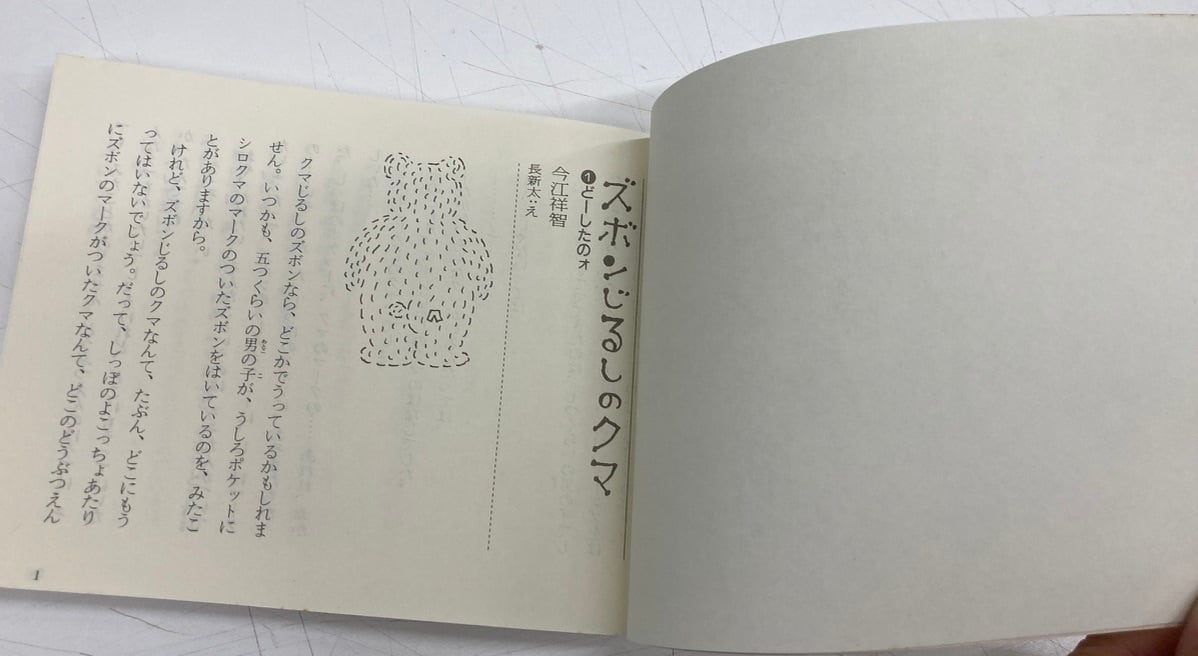 ズボンじるしのクマ
❶どーしたのオ
今江祥智
長新太:え
クマじるしのズボンなら、どこかでうっているかもしれま
せん。いつかも、五つくらいの男の子が、うしろポケットに
シロクマのマークのついたズボンをはいているのを、みたこ
とがありますから。
けれど、ズボンじるしのクマなんて、たぶん、どこにもう
ってはいないでしょう。だって、しっぽのよこっちょあたり
にズボンのマークがついたクマなんて、どこのどうぶつえん
1